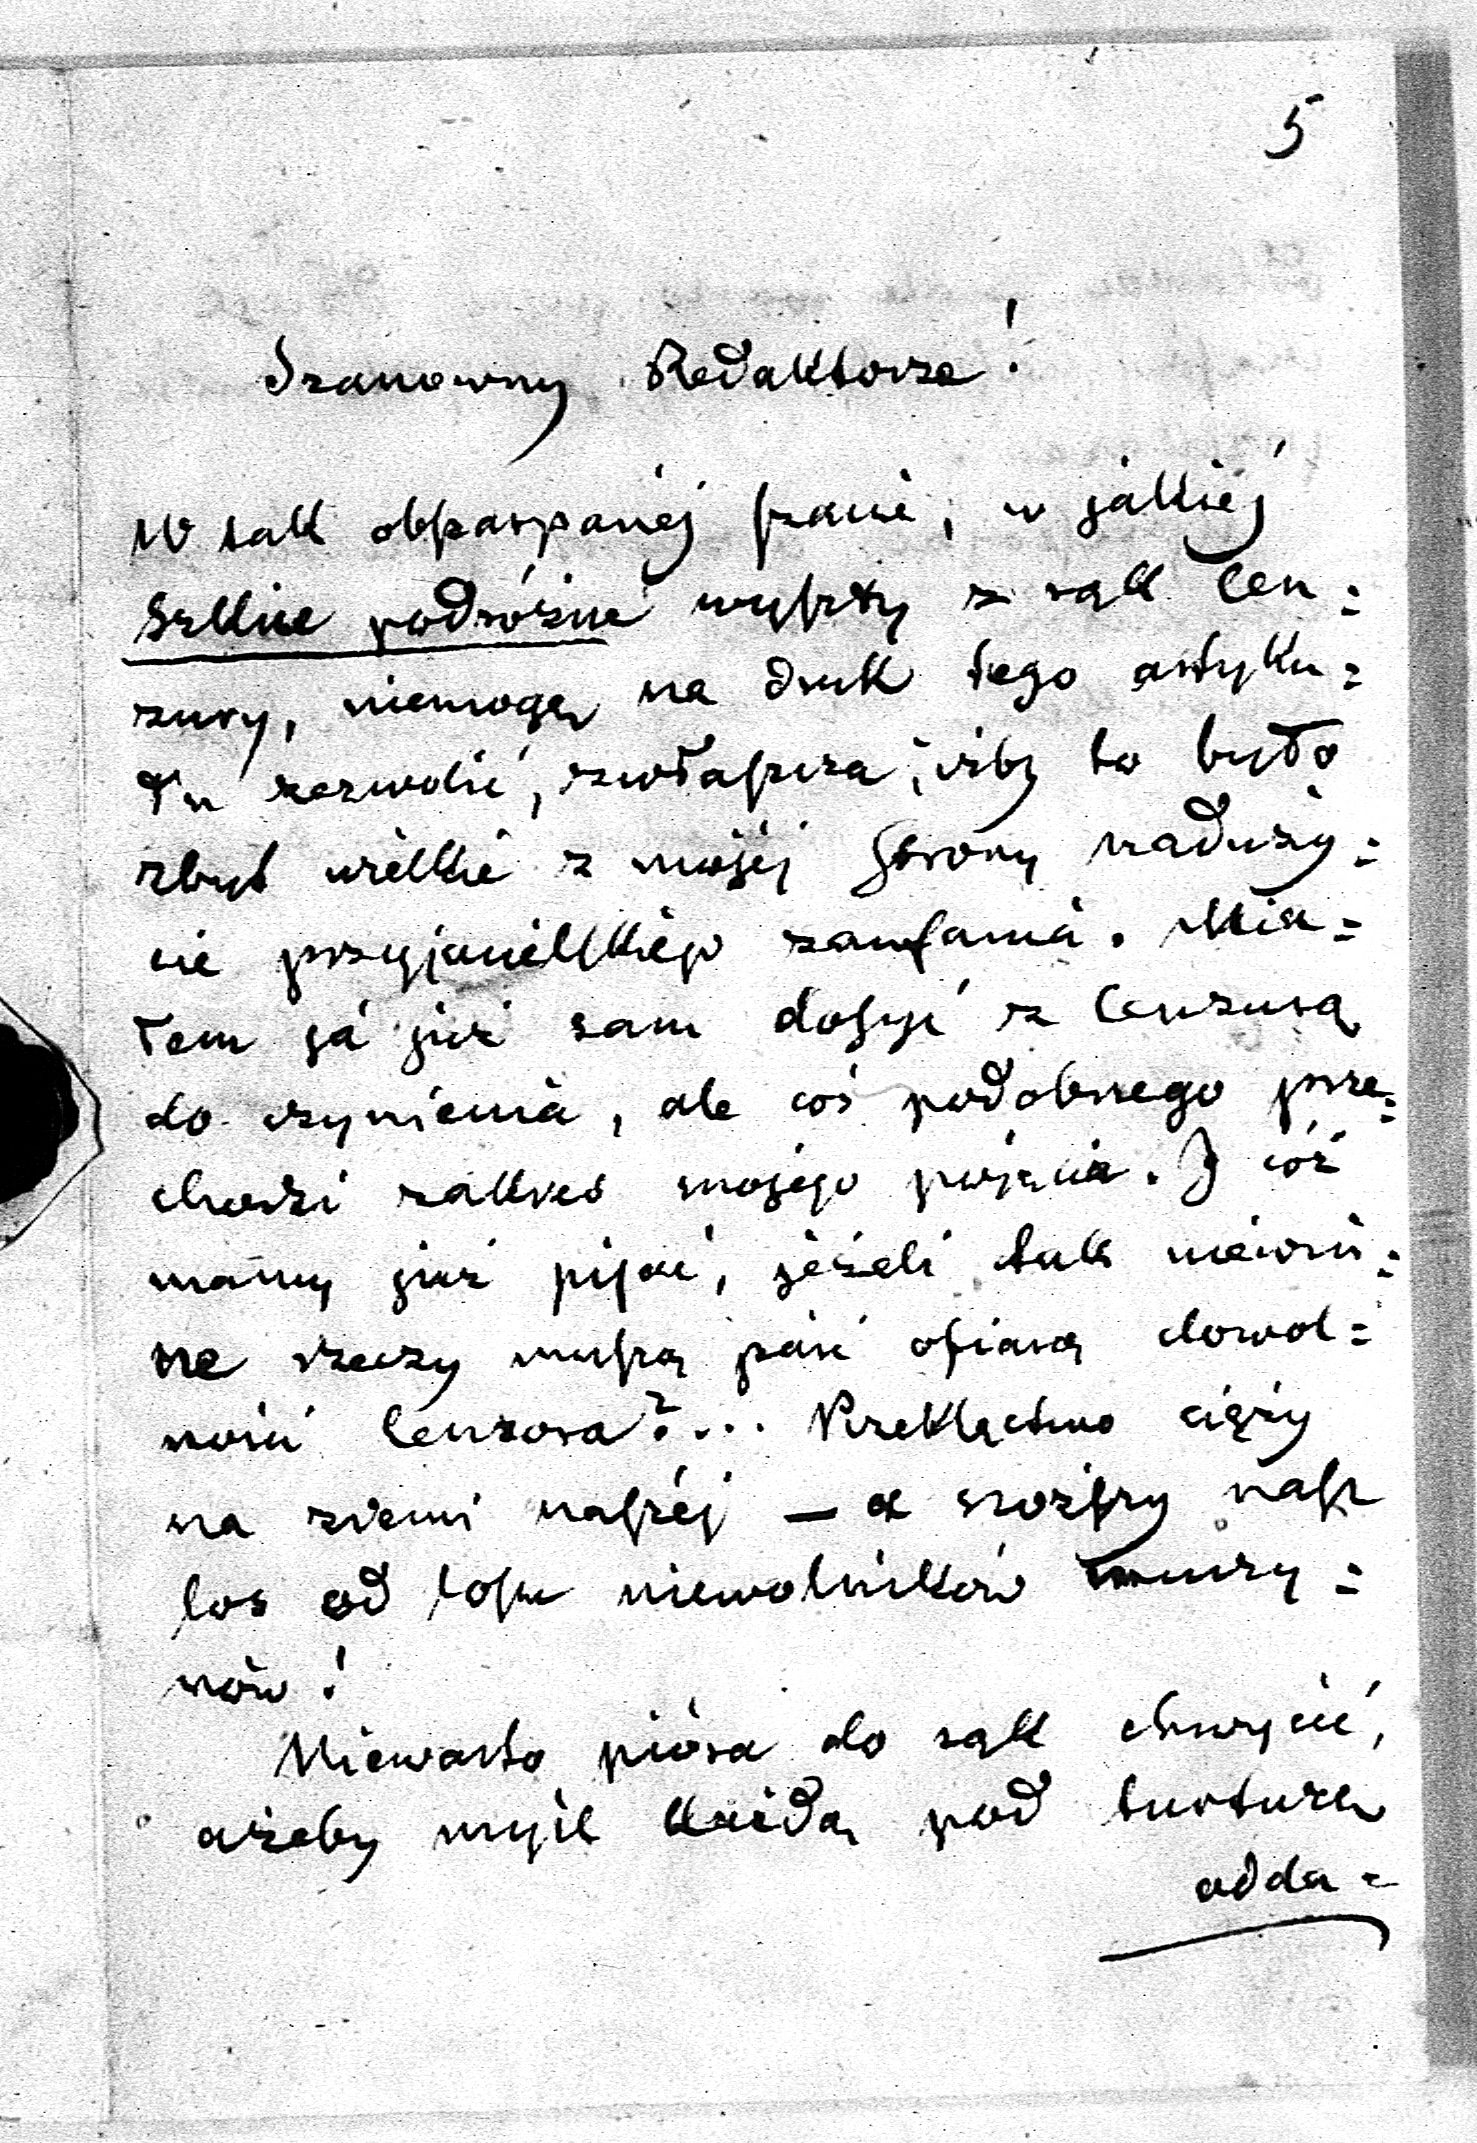 5
Szanowny Redaktorze!
W tak obszarpanéj szacie, w jakiéj
Szkice podróżne wyszły z rąk Cen=
zury, niemogę na druk tego artyku=
łu zezwolić, zwłaszcza, iżby to było
zbyt wielkie z mojéj strony naduży=
cie przyjacielskiego zaufania. Mia=
łem já już sam dosyć z Cenzurą
do czynienia, ale coś podobnego prze=
chodzi zakres mojego pojęcia. I cóż
mamy już pisać, jeżeli tak niewin=
ne rzeczy muszą paść ofiarą dowol=
ności Cenzora?... Przekleństwo cięży
na ziemi naszéj — a srożzy nasz
los od losu niewolników murzy=
nów!
Niewarto pióra do rąk chwycić,
ażeby myśl każdą pod torturę
odda=